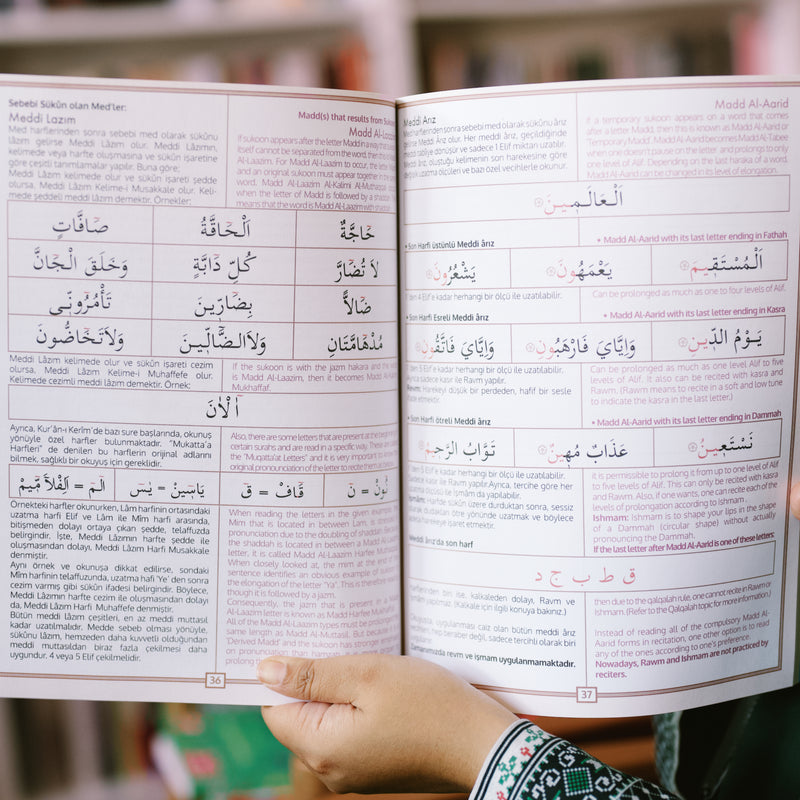 Sebebi Sükûn olan Med'ler:
Meddi Lazım
Med harflerinden sonra sebebi med olarak sükûnu
lâzım gelirse Meddi Lâzım olur. Meddi Lâzımın,
kelimede veya harfte oluşmasına ve sükûn işaretine
göre çeşitli tanımlamalar yapılır. Buna göre;
Meddi Lâzım kelimede olur ve sükûn işareti şedde
olursa, Meddi Lâzım Kelime-i Musakkale olur. Keli-
mede şeddeli meddi lâzım demektir. Örnekler:
Madd(s) that results from Sukoon
Madd Al-Laazim
If sukoon appears after the letter Madd in a way that
itself cannot be separated from the word, then this is
Al-Laazim. For Madd Al-Laazim to occur, the letter
and an original sukoon must appear together in
word. Madd Al-Laazim Al-Kalimi Al-Muthaqqal
when the letter of Madd is followed by a shaddah
means that the word is Madd Al-Laazim with shaddah
حَاجَّةٌ اَلْحَاقَّةُ صَافَّاتٍ
لَا تُضَارَّ كُلِّ دَابَّةٍ وَخَلَقَ الْجَانَّ
ضَالًّا بِضَارِّينَ تَأْمُرُونِّي
مُدْهَامَّتَانِ وَلَاالضَّالِّينَ وَلَاتَحَاضُّونَ
Meddi Lâzım kelimede olur ve sükûn işareti cezim
olursa, Meddi Lâzım Kelime-i Muhaffefe olur.
Kelimede cezimli meddi lâzım demektir. Örnek:
If the sukoon is with the jazm hakara and the word
is Madd Al-Laazim, then it becomes Madd Al-Laazim
Mukhaffaf.
آلْاٰنَ
Ayrıca, Kur'ân-ı Kerîm'de bazı sure başlarında, okunuş
yönüyle özel harfler bulunmaktadır. "Mukatta'a
Harfleri" de denilen bu harflerin orijinal adlarını
bilmek, sağlıklı bir okuyuş için gereklidir.
Also, there are some letters that are present at the beginning
certain surahs and are read in a specific way. These are
the "Muqatta'at Letters" and it is very important to know
original pronunciation of the letter to recite them
نُونْ = نَ قَافْ = قَ يَاسِينْ = يٰسَ اَلِفْلَامْ مِّيمْ = الٓمَ
Örnekteki harfler okunurken, Lâm harfinin ortasındaki
uzatma harfi Elif ve Lâm ile Mîm harfi arasında,
bitişmeden dolayı ortaya çıkan şedde, telaffuzda
belirgindir. İşte, Meddi Lâzımın harfte şedde ile
oluşmasından dolayı, Meddi Lâzım Harfi Musakkale
denmiştir.
Aynı örnek ve okunuşa dikkat edilirse, sondaki
Mîm harfinin telaffuzunda, uzatma hafi 'Ye' den sonra
cezim varmış gibi sükûn ifadesi belirgindir. Böylece,
Meddi Lâzımın harfte cezim ile oluşmasından dolayı
da, Meddi Lâzım Harfi Muhaffefe denmiştir.
Bütün meddi lâzım çeşitleri, en az meddi muttasıl
kadar uzatılmalıdır. Medde sebep olması yönüyle,
sükûnu lâzım, hemzeden daha kuvvetli olduğundan
meddi muttasıldan biraz fazla çekilmesi daha
uygundur. 4 veya 5 Elif çekilmelidir.
When reading the letters in the given example,
Mim that is located between Lam, is prominent
pronunciation due to the doubling of shaddah. Because
the shaddah is located in between a Madd Al-Laazim
letter, it is called Madd Al-Laazim Harfee
When closely looked at, the mim at the end of
sentence identifies an obvious example of sukoon
the elongation of the letter "ya". This is therefore read
though it is followed by a jazm.
Consequently, the jazm that is present in a Madd
Al-Laazim letter is known as Madd Harfee Mukhaffaf
All of the Madd Al-Laazim types must be prolonged
same length as Madd Al-Muttasil. But because
'Derived Madd' and the sukoon has stronger
on pronunciation than
prolong
36
Meddi Ârız
Med harflerinden sonra sebebi med olarak sükûnu ârız
olursa Meddi Ârız olur. Her meddi ârız, geçildiğinde
meddi tabiîye dönüşür ve sadece 1 Elif miktarı uzatılır.
Meddi Ârız, oluştuğu kelimenin son harekesine göre
uzatma ölçüleri ve bazı özel vecihlerle okunur.
Madd Al-Aarid
If a temporary sukoon appears on a word that comes
after a letter Madd, then this is known as Madd Al-Aarid or
'Temporary Madd'. Madd Al-Aarid becomes Madd Al-Tabee
when one doesn't pause on the letter and prolongs to only
one level of Alif. Depending on the last haraka of a word,
Madd Al-Aarid can be changed in its level of elongation.
اَلْعَالَمِينَ
• Son Harfi üstünlü Meddi ârız
• Madd Al-Aarid with its last letter ending in Fathah
اَلْمُسْتَقِيمَ يَعْمَهُونَ يَشْعُرُونَ
1 den 4 Elif'e kadar herhangi bir ölçü ile uzatılabilir.
Can be prolonged as much as one to four levels of Alif.
• Son Harfi Esreli Meddi ârız
• Madd Al-Aarid with its last letter ending in Kasra
يَوْمُ الدِّينِ وَاِيَّايَ فَارْهَبُونِ وَاِيَّايَ فَاتَّقُونِ
1 den 5 Elif'e kadar herhangi bir ölçü ile uzatılabilir.
Ayrıca sadece kasır ile Ravm yapılır.
Revm: Harekeyi düşük bir perdeden, hafif bir sesle
okumaktır.
Can be prolonged as much as one level of Alif to five
levels of Alif. It also can be recited with kasra and
Rawm. (Rawm means to recite in a soft and low tune
to indicate the kasra in the last letter.)
• Son Harfi ötreli Meddi ârız
• Madd Al-Aarid with its last letter ending in Dammah
نَسْتَعِينُ عَذَابٌ مُهِينٌ تَوَّابُ الرَّحِيمُ
1 den 5 Elif'e kadar herhangi bir ölçü ile uzatılabilir.
Ayrıca sadece Kasır ile Ravm yapılır.Ayrıca, tercihe göre her
uzatma ölçüsü ile İşmâm da yapılabilir.
İşmâm: Harfte sükûn üzere durduktan sonra, sessiz
olarak, dudakları ötre yönünde uzatmak ve böylece
ötre harekeye işaret etmektir.
it is permissible to prolong it from up to one level of Alif
to five levels of Alif. This can only be recited with kasra
and Rawm. Also, if one wants, one can recite each of the
levels of prolongation according to Ishmam.
Ishmam: Ishmam is to shape your lips in the shape
of a Dammah (circular shape) without actually
pronouncing the Dammah.
Meddi Ârız'da son harf
If the last letter after Madd Al-Aarid is one of these letters:
ق ط ب ج د
Harflerinden biri ise, kalkaleden dolayı, Ravm ve
İşmâm yapılmaz. (Kalkale için ilgili konuya bakınız.)
Okuyuşta, uygulanması caiz olan bütün meddi ârız
vecihleri, hep beraber değil, sadece tercihli olarak biri
okunur.
Zamanımızda revm ve işmam uygulanmamaktadır.
then due to the qalqalah rule, one cannot recite in Rawm or
Ishmam. (Refer to the Qalqalah topic for more information)
Instead of reading all of the compulsory Madd Al-
Aarid forms in recitation, one other option is to read
any of the ones according to one's preference.
Nowadays, Rawm and Ishmam are not practiced by
reciters.
37